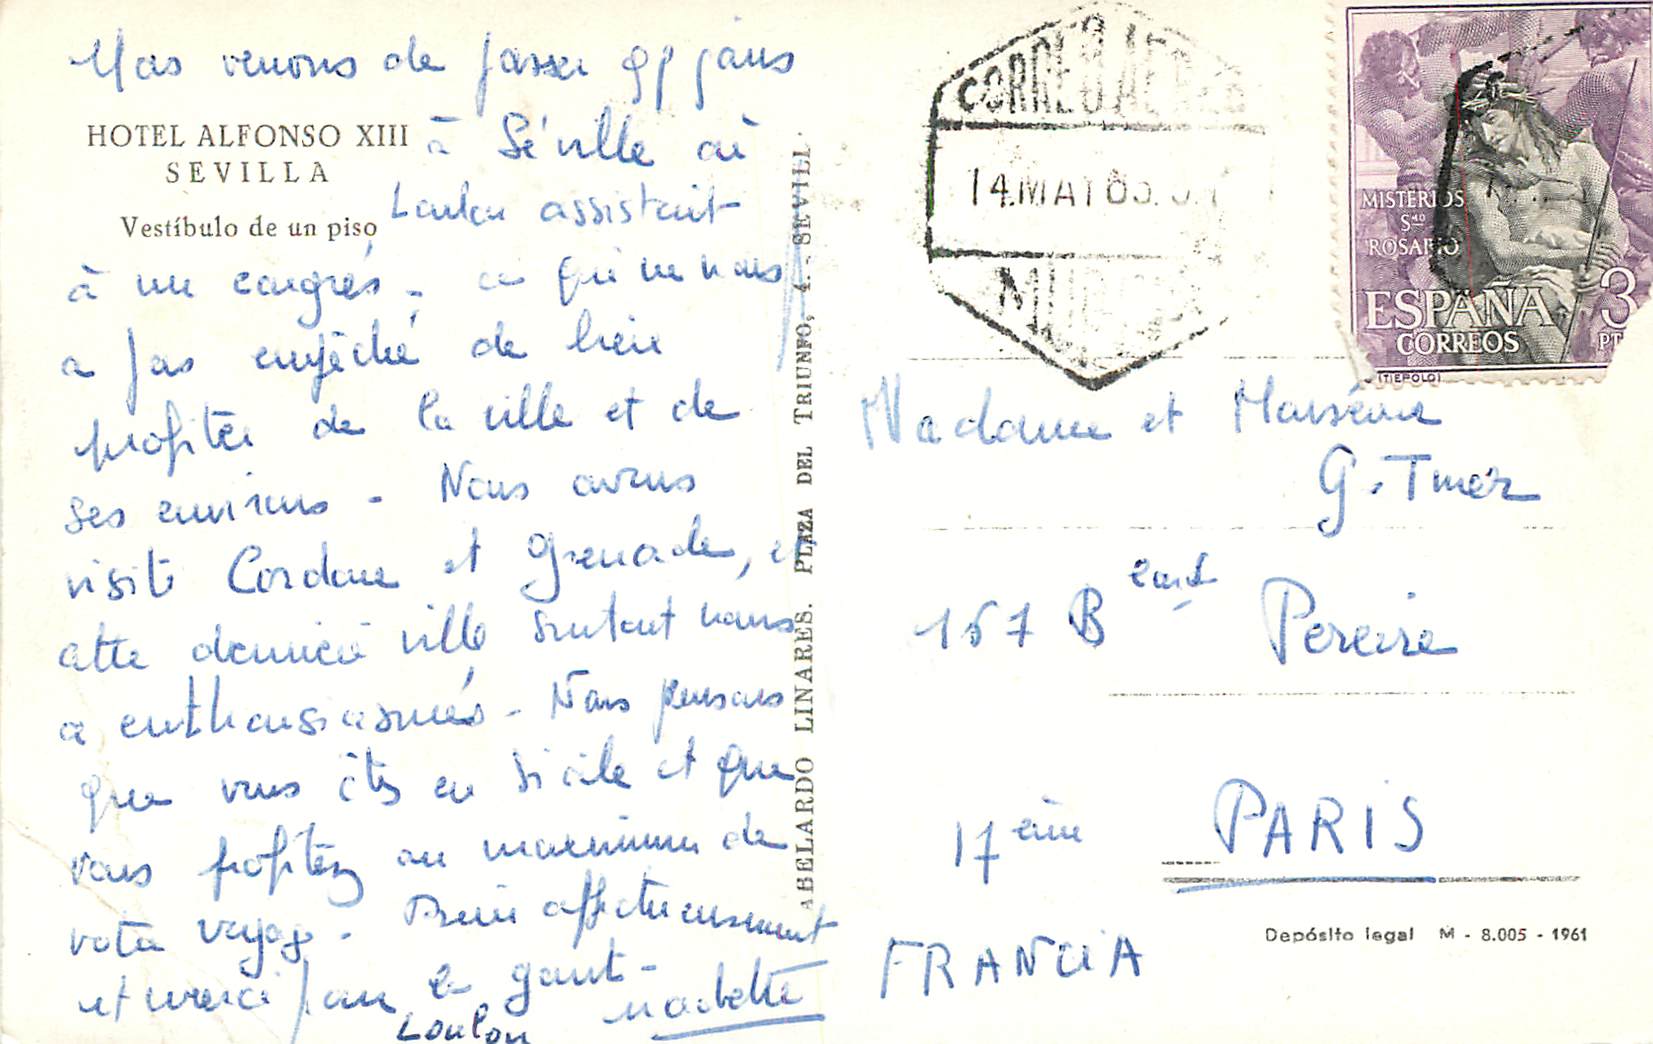 Nous venons de passer qq jours
HOTEL ALFONSO XIII
SEVILLA
Vestíbulo de un piso
à Séville où
Loulou assistait
à un congrès, ce qui ne nous
a pas empêché de bien
profiter de la ville et de
ses environs - Nous avons
visité Cordoue et Grenade, et
cette dernière ville surtout nous
a enthousiasmés - Nous pensons
que vous êtes en Sicile et que
vous profitez au maximum de
votre voyage - Bien affectueusement
et merci pour le gant -
Loulou
ABELARDO LINARES. PLAZA DEL TRIUNFO, 4 - SEVILL
CORREO AEREO
14.MAY 63
MISTERIOS
Smo
ROSARIO
ESPAÑA
3
PT
CORREOS
(TIEPOLO)
Madame et Monsieur
G.
167 Beard Pereire
17ème PARIS
FRANCIA
Depósito legal M - 8.005 - 1961